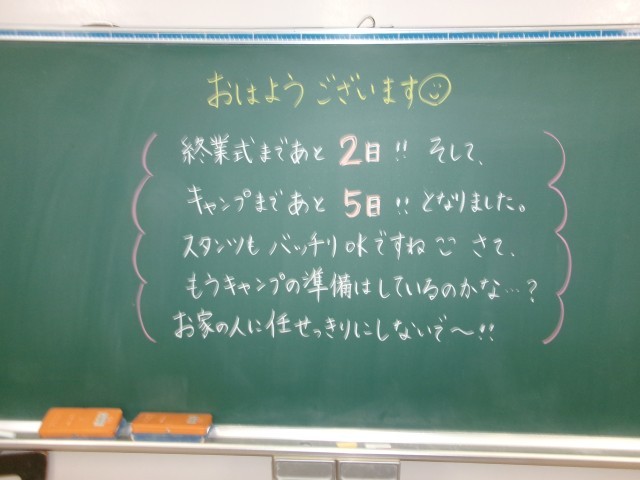 おはようございます
終業式まであと2日!! そして、
キャンプまであと5日!! となりました。
スタンツも バッチリOKですね さて、
もうキャンプの準備はしているのかな…?
お家の人に任せっきりにしないで〜!!